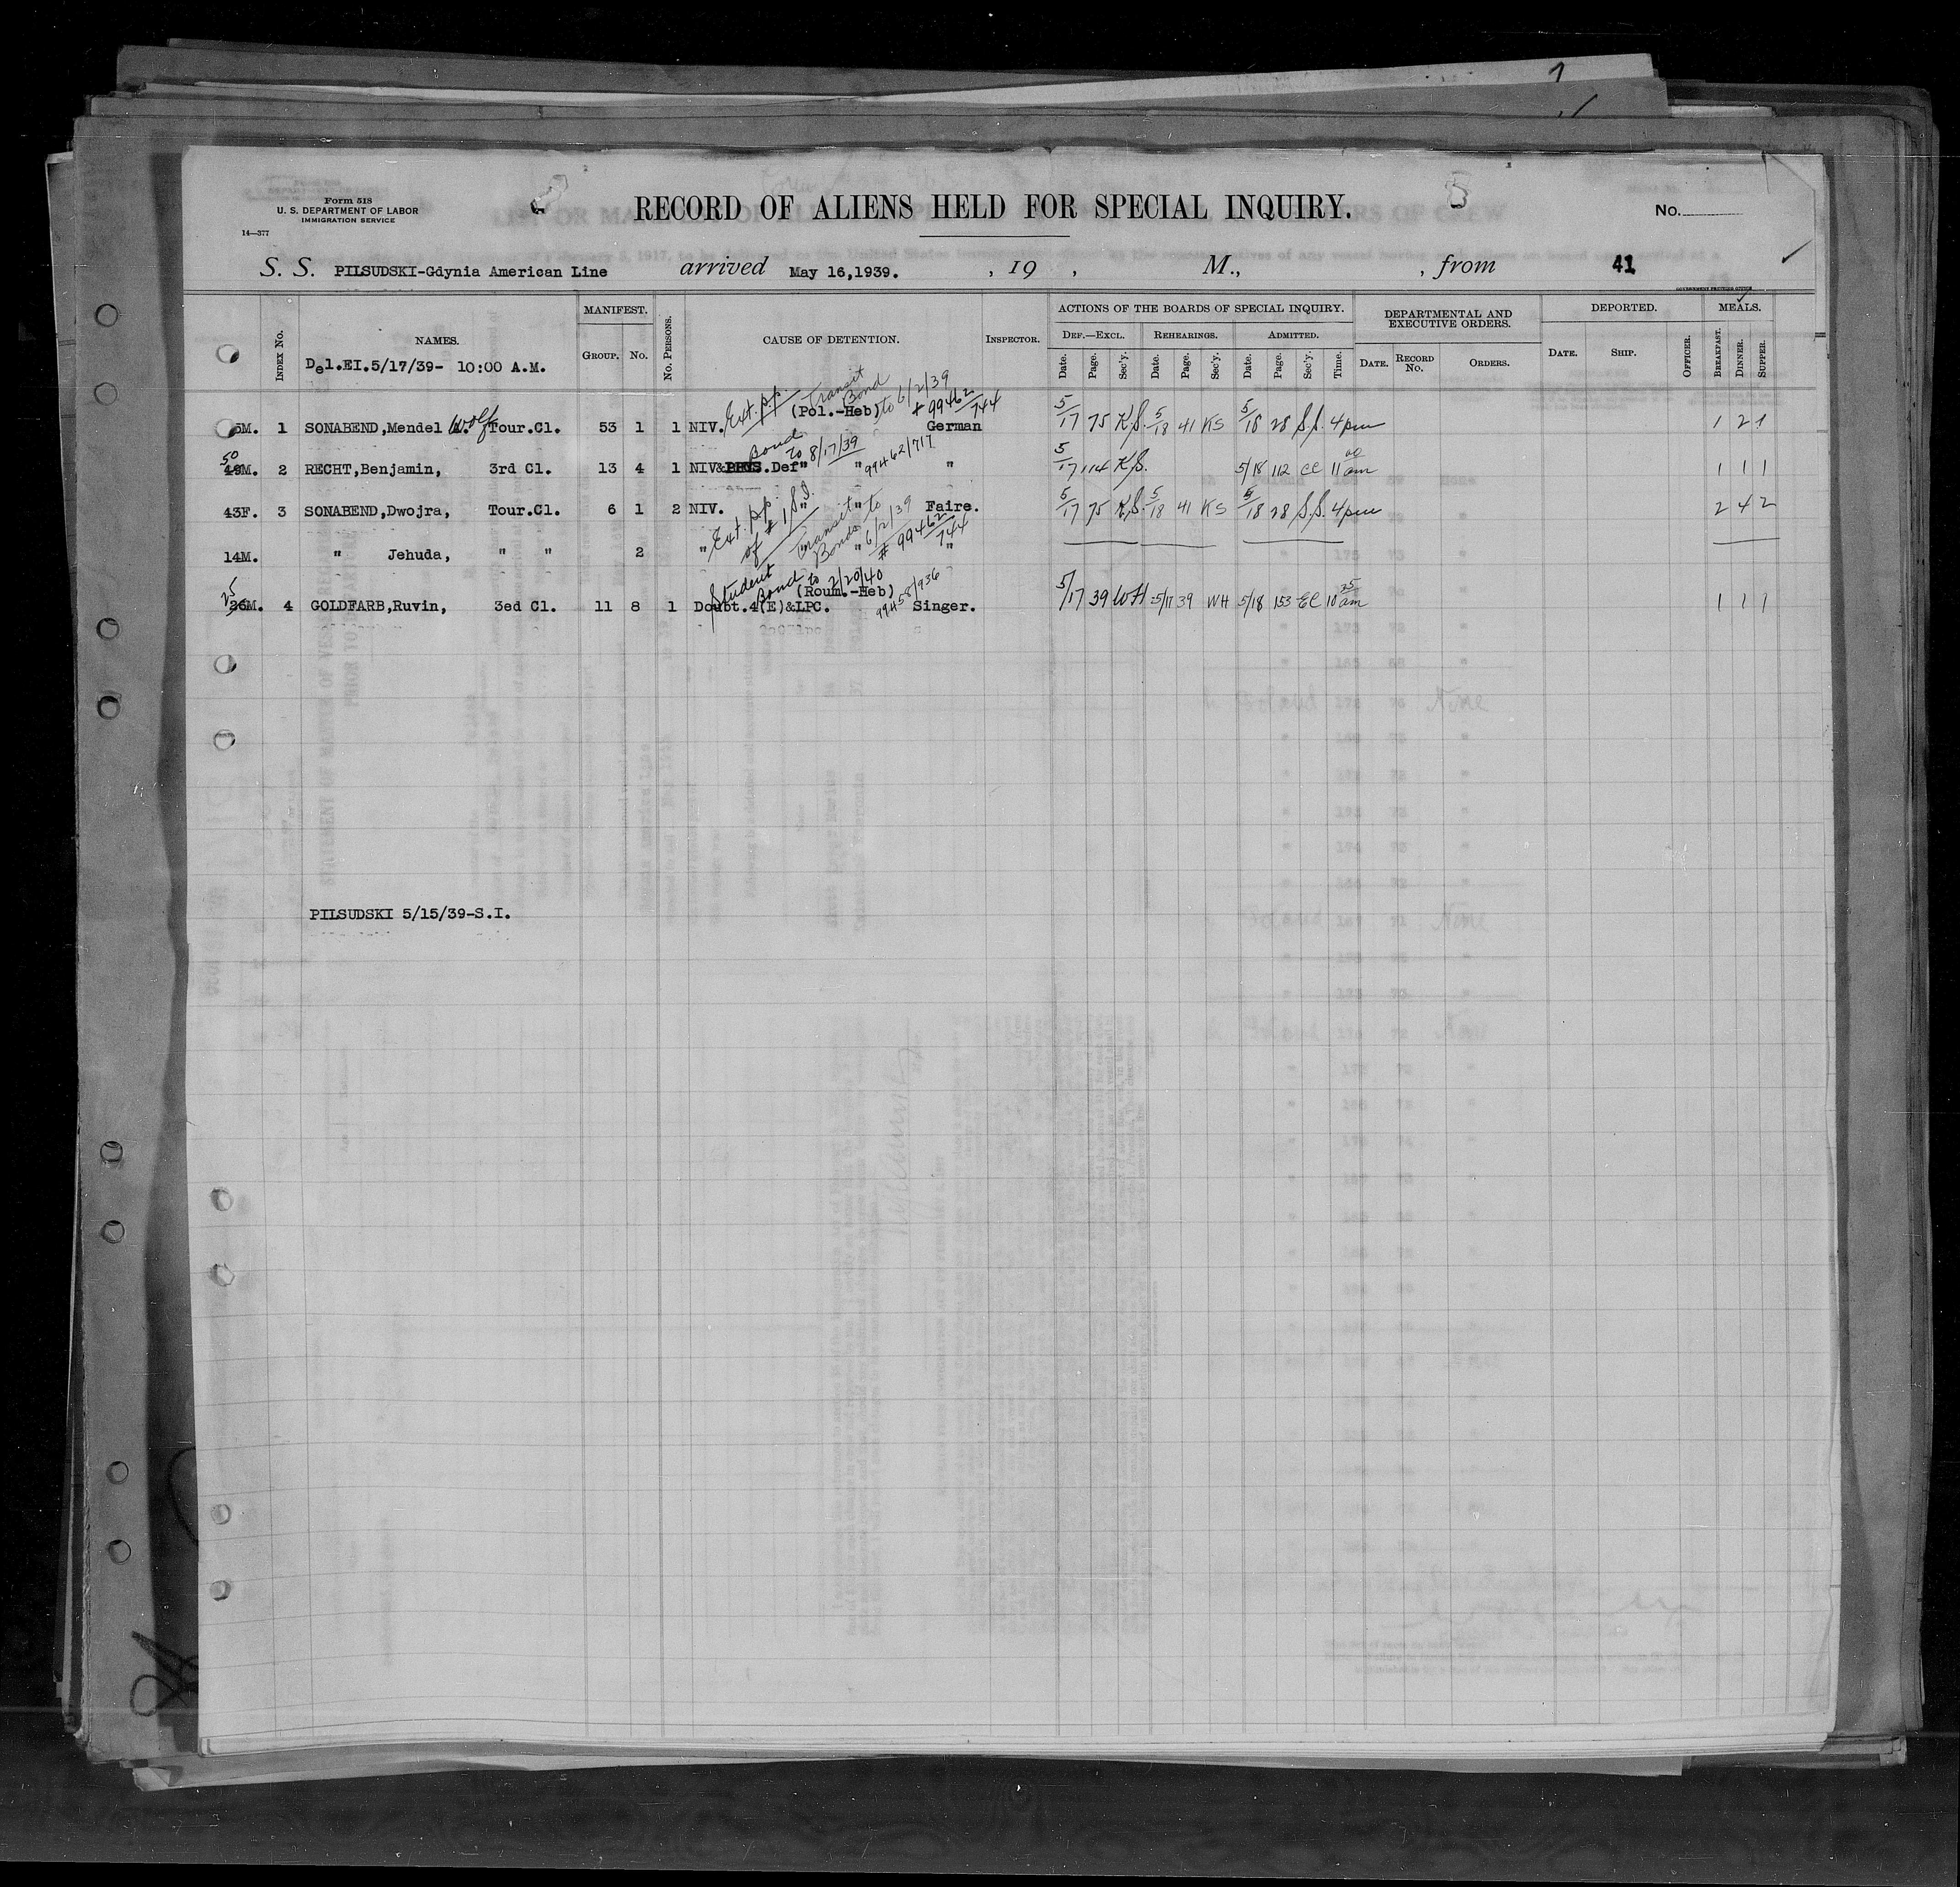 Form 518
U. S. DEPARTMENT OF LABOR
IMMIGRATION SERVICE
14—377
RECORD OF ALIENS HELD FOR SPECIAL INQUIRY.
No.
S. S. PILSUDSKI-Gdynia American Line arrived May 16,1939. , 19 , M., , from 41
GOVERNMENT PRINTING OFFICE
INDEX No. NAMES. MANIFEST. GROUP. No. No. PERSONS. CAUSE OF DETENTION. INSPECTOR. ACTIONS OF THE BOARDS OF SPECIAL INQUIRY. DEPARTMENTAL AND EXECUTIVE ORDERS. DEPORTED. MEALS.
DEF.—EXCL. REHEARINGS. ADMITTED.
Date. Page. Sec'y. Date. Page. Sec'y. Date. Page. Sec'y. Time. DATE. RECORD No. ORDERS. DATE. SHIP. OFFICER. BREAKFAST. DINNER. SUPPER.
Del.EI.5/17/39- 10:00 A.M.
Ext. pp. Transit Bond to 6/2/39 # 99462/744
(Pol.-Heb)
5M. 1 SONABEND,Mendel Wolf Tour.Cl. 53 1 1 NIV. German 5/17 75 K.S. 5/18 41 KS 5/18 28 S.S. 4pm 1 2 1
Bond to 8/17/39 99462/717
50 49M. 2 RECHT,Benjamin, 3rd Cl. 13 4 1 NIV&PHYS.Def" " " 5/17 114 K.S. 5/18 112 CC 11 00 am 1 1 1
43F. 3 SONABEND,Dwojra, Tour.Cl. 6 1 2 NIV. " " Faire. 5/17 75 K.S. 5/18 41 KS 5/18 28 S.S. 4pm 2 4 2
Ext. pp. of #1 S.I. Transit Bonds to 6/2/39 # 99462/744
14M. " Jehuda, " " 2 " " "
Student Bond to 2/20/40 99458/936
(Roum.-Heb)
25 26M. 4 GOLDFARB,Ruvin, 3ed Cl. 11 8 1 Doubt.4(E)&LPC. Singer. 5/17 39 WH 5/17 39 WH 5/18 153 EC 10 25 am 1 1 1
PILSUDSKI 5/15/39-S.I.